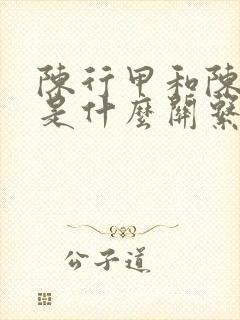 陳行甲和陳
是什麼關繫
公子道